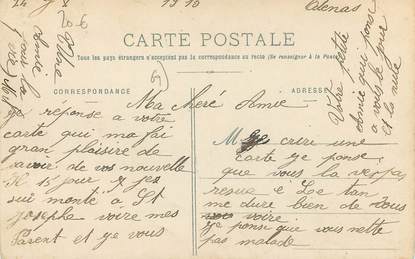 24 1910 Odenas
206
CARTE POSTALE
Tous les pays étrangers n'acceptent pas la correspondance au recto (Se renseigner à la Poste)
CORRESPONDANCE
ADRESSE
Ma chéré Amie
je réponse a votre
carte qui ma fai
gran plaisire de
savoir de vos nouvelle
Il 15 jour ge
sui monté a St
Josephe voire mes
Parent et ye vous
ecrire une
carte ye ponse
que vous la
resue e Le tan
me dure bien de vous
voire
ye ponsé que vous nette
pas malade
Votre petite
amie qui ponse
a vous le jour
et la nuite
Amie
pour la
vie